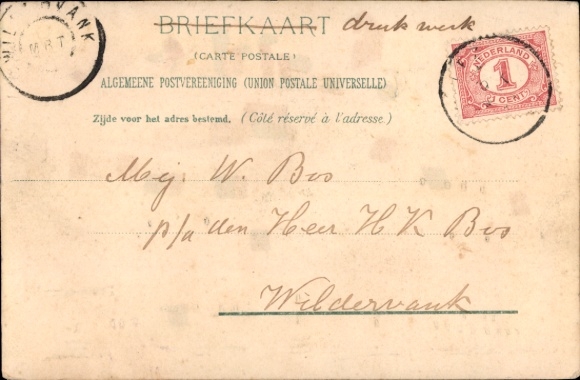 BRIEFKAART druk werk
(CARTE POSTALE)
ALGEMEENE POSTVEREENIGING (UNION POSTALE UNIVERSELLE)
Zijde voor het adres bestemd. (Côté réservé à l'adresse.)
NEDERLAND
1
CENT
Mej. W. Bos
p/a den Heer H K Bos
Wildervank